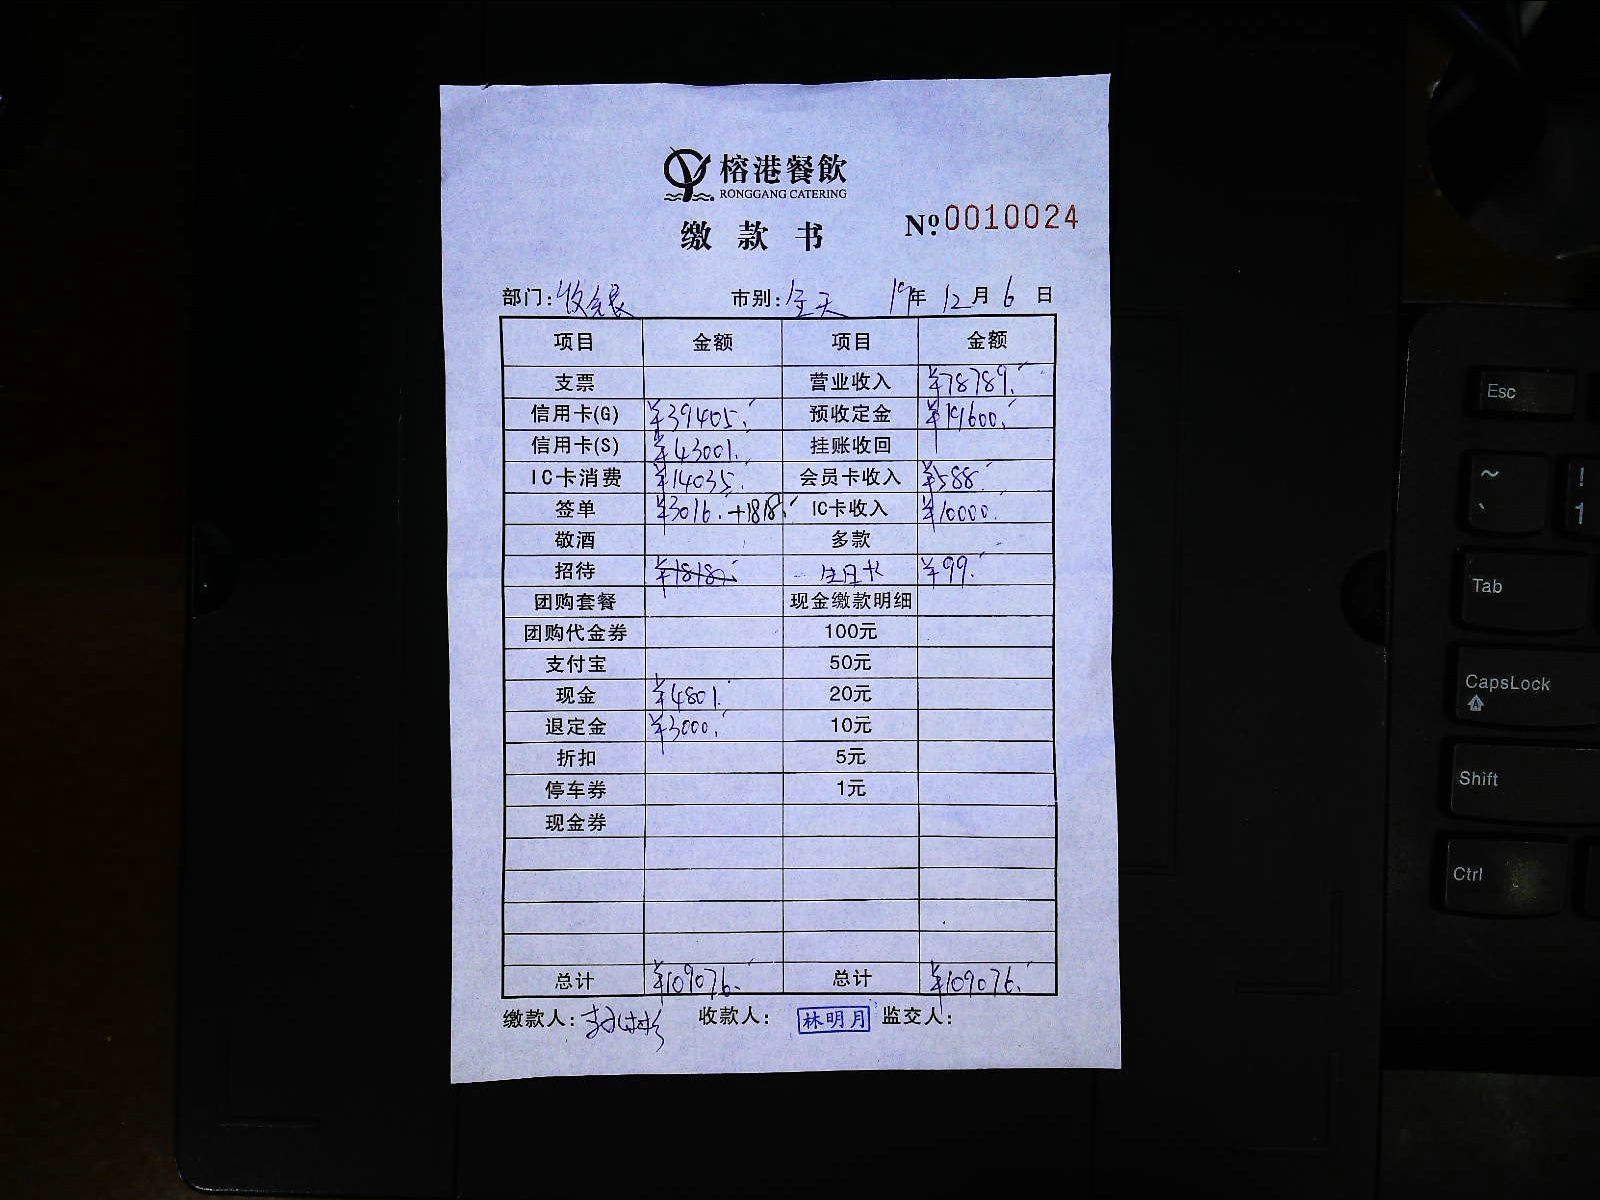 榕港餐飲
RONGGANG CATERING
缴款书
№ 0010024
部门: 收银 市别: 全天 19年 12月 6日
项目 金额 项目 金额
支票 营业收入 ¥78789.
信用卡(G) ¥39405. 预收定金 ¥19600.
信用卡(S) ¥43001. 挂账收回
IC卡消费 ¥14035. 会员卡收入 ¥588.
签单 ¥3016.+1818. IC卡收入 ¥10000.
敬酒 多款
招待 ¥1818. 生日卡 ¥99.
团购套餐 现金缴款明细
团购代金券 100元
支付宝 50元
现金 ¥4801. 20元
退定金 ¥3000. 10元
折扣 5元
停车券 1元
现金券
总计 ¥109076. 总计 ¥109076.
缴款人: 收款人: 林明月 监交人:
Esc
~
`
!
1
Tab
CapsLock
Shift
Ctrl